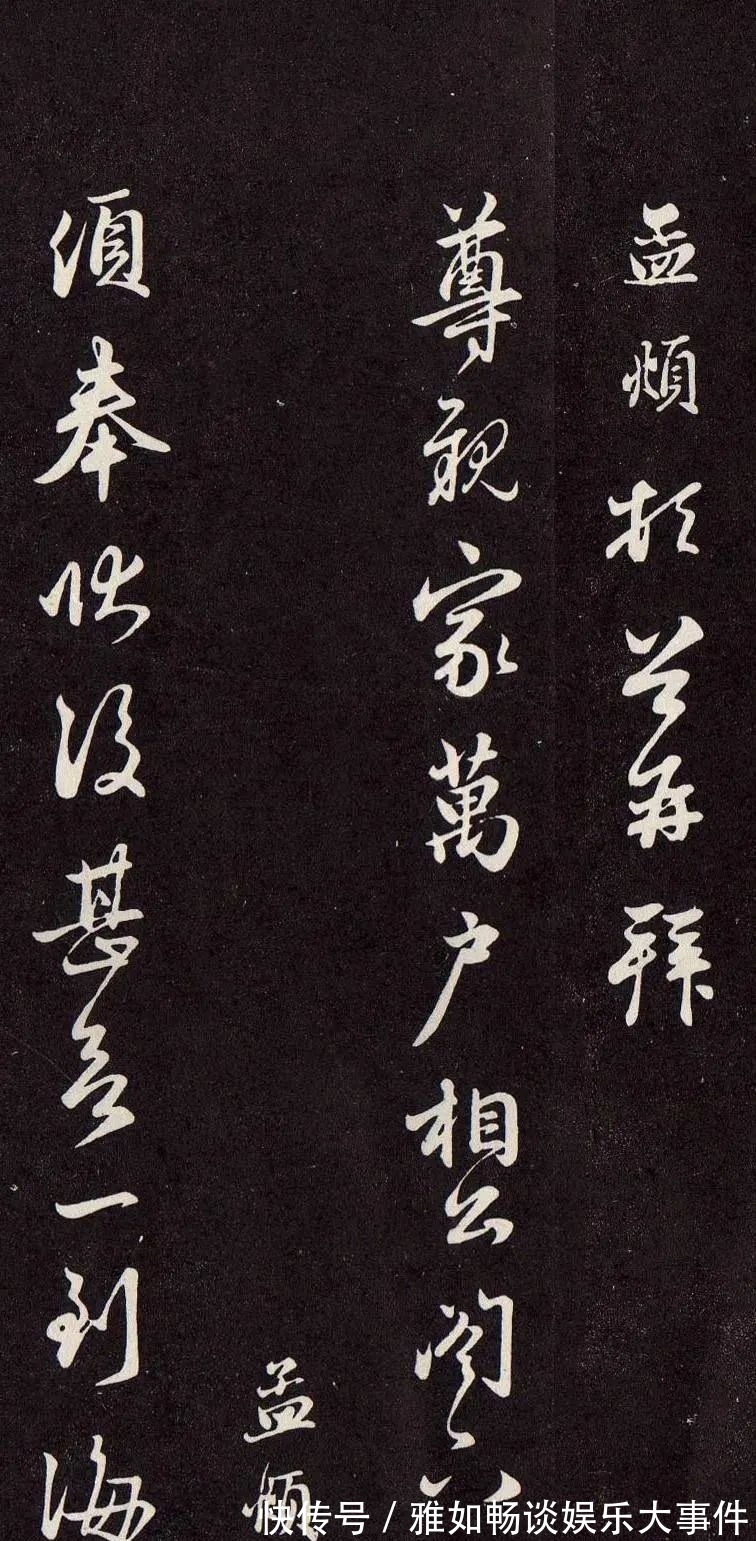 孟頫頓首再拜
尊親家萬户相公閣下
孟頫
頃奉 甚 一到海
快传号 / 雅如畅谈娱乐大事件